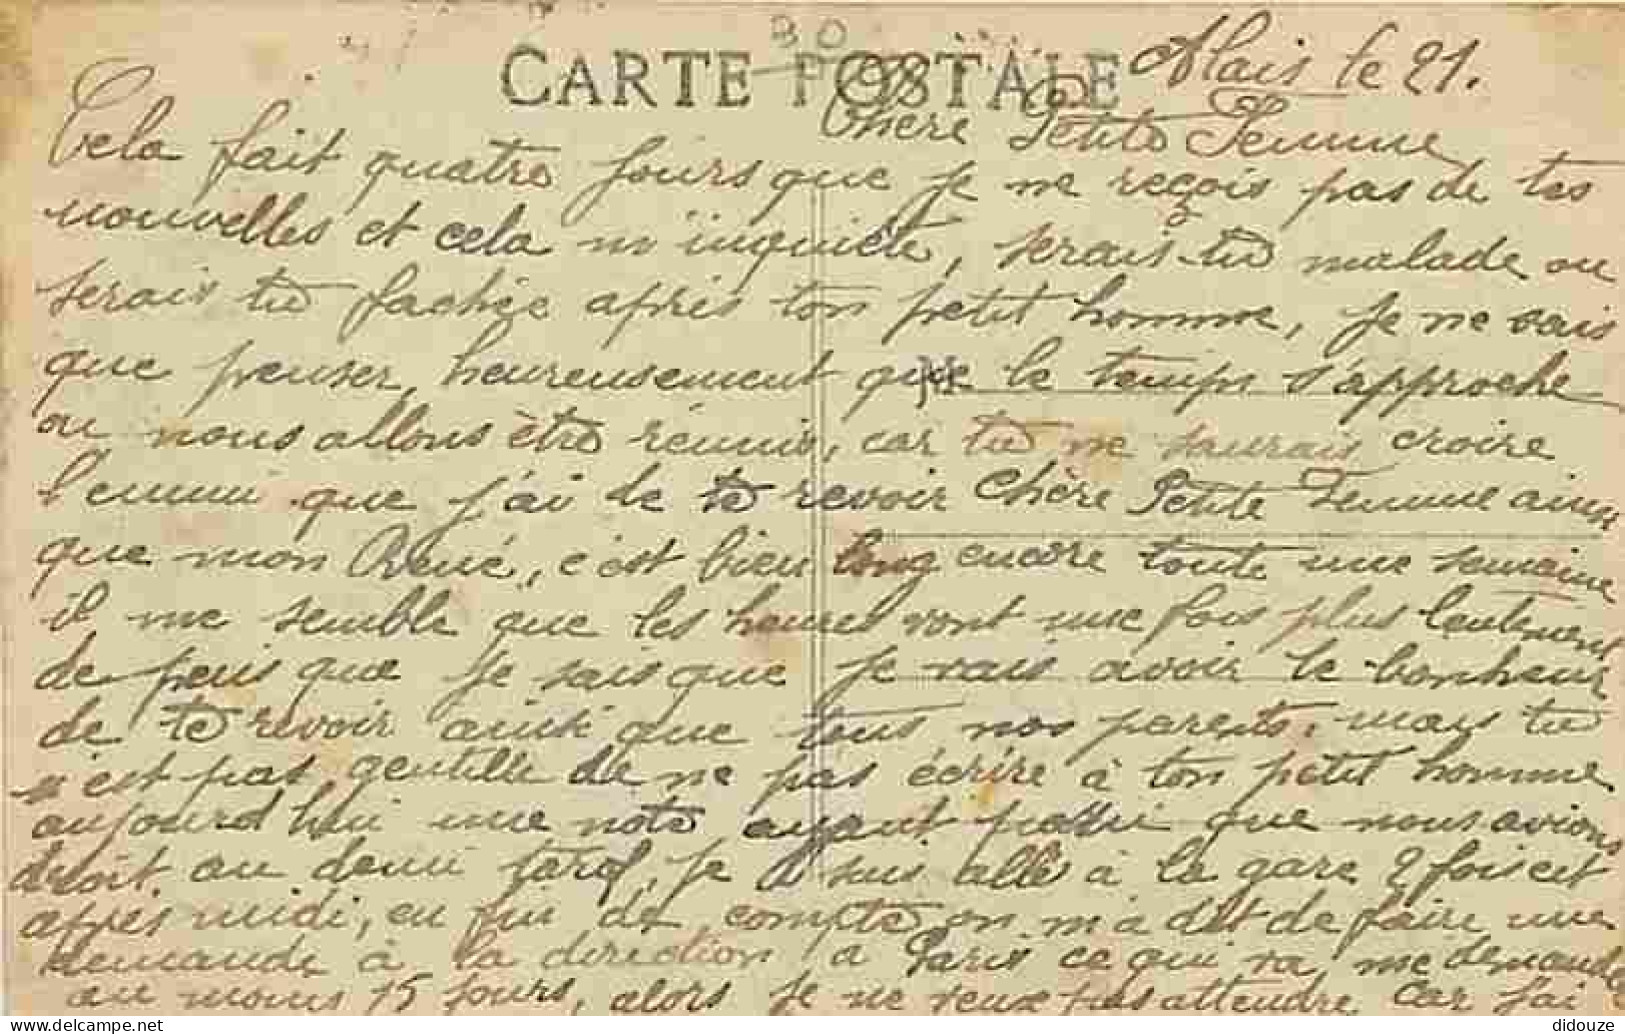 30
CARTE POSTALE
Alais le 21.
Chère Petite Femme
Cela fait quatre jours que je ne reçois pas de tes
nouvelles et cela m'inquiète, serais-tu malade ou
serais tu fachée après ton petit homme, je ne sais
que penser, heureusement que le temps s'approche
M
ou nous allons être réunis, car tu ne saurais croire
l'ennui que j'ai de te revoir Chère Petite Femme ainsi
que mon René, c'est bien long encore toute une semaine
il me semble que les heures vont une fois plus lentement
depuis que je sais que je vais avoir le bonheur
de te revoir ainsi que tous nos parents, mais tu
n'est pas gentille de ne pas écrire à ton petit homme
aujourd'hui une note ayant que nous avions
droit au demi tarif, je suis allé à la gare 2 fois cet
après midi, en fin de compte on m'a dit de faire une
demande à la direction a Paris ce qui va me demander
au moins 15 jours, alors je ne veux pas attendre car j'ai
didouze